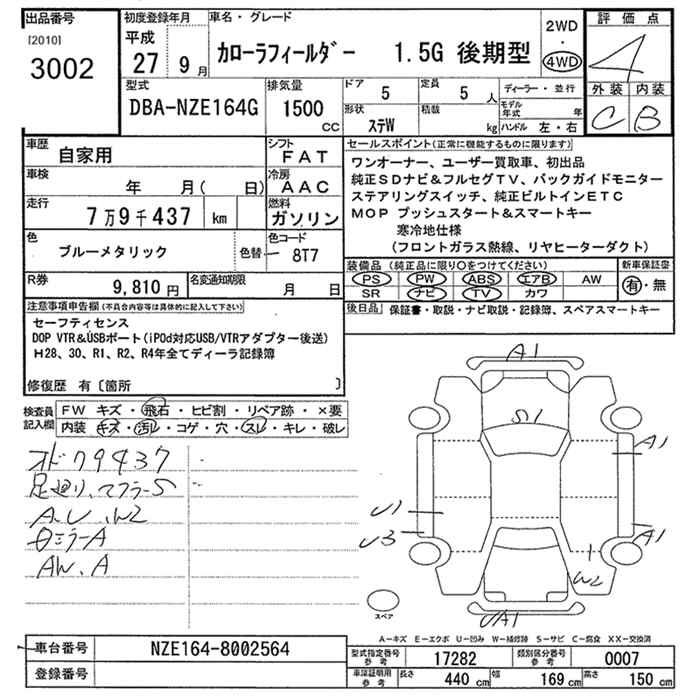 出品番号
[2010]
3002
初度登録年月
平成
27 9月
車名・グレード
カローラフィールダー 1.5G 後期型
2WD
・
4WD
評価点
4
外装 内装
C B
型式
DBA-NZE164G
排気量
1500
CC
ドア
5
定員
5 人
形状
ステW
積載
kg
ディーラー・並行
モデル年式 年
ハンドル 左・右
車歴
自家用
シフト
FAT
車検
年 月( 日)
冷房
AAC
走行
7万9千437 km
燃料
ガソリン
色
ブルーメタリック
色替
色コード
8T7
セールスポイント(正常に機能するものに限ります)
ワンオーナー、ユーザー買取車、初出品
純正SDナビ&フルセグTV、バックガイドモニター
ステアリングスイッチ、純正ビルトインETC
MOP プッシュスタート&スマートキー
寒冷地仕様
(フロントガラス熱線、リヤヒーターダクト)
R券
9,810 円
名変通知期限
月 日
装備品(純正品に限り○をつけてください)
PS PW ABS エアB AW
SR ナビ TV カワ
新車保証書
有・無
後日品 保証書・取説・ナビ取説・記録簿、スペアスマートキー
注意事項申告欄(不具合内容等は具体的に記入して下さい)
セーフティセンス
DOP VTR&USBポート(iPod対応USB/VTRアダプター後送)
H28、30、R1、R2、R4年全てディーラ記録簿
修復歴 有〔箇所 〕
検査員記入欄
FW キズ・飛石・ヒビ割・リペア跡・×要
内装 キズ・汚レ・コゲ・穴・スレ・キレ・破レ
オドク9437
足廻り、マフラーS
A、U、W2
ミラーA
AW、A
A1
S1
A1
U1
U3
A1
W2
UA1
スペア
A-キズ E-エクボ U-凹み W-補修跡 S-サビ C-腐食 XX-交換済
車台番号
NZE164-8002564
登録番号
型式指定番号 参考
17282
類別区分番号 参考
0007
車庫証明用 参考
長さ 440 cm
幅 169 cm
高さ 150 cm